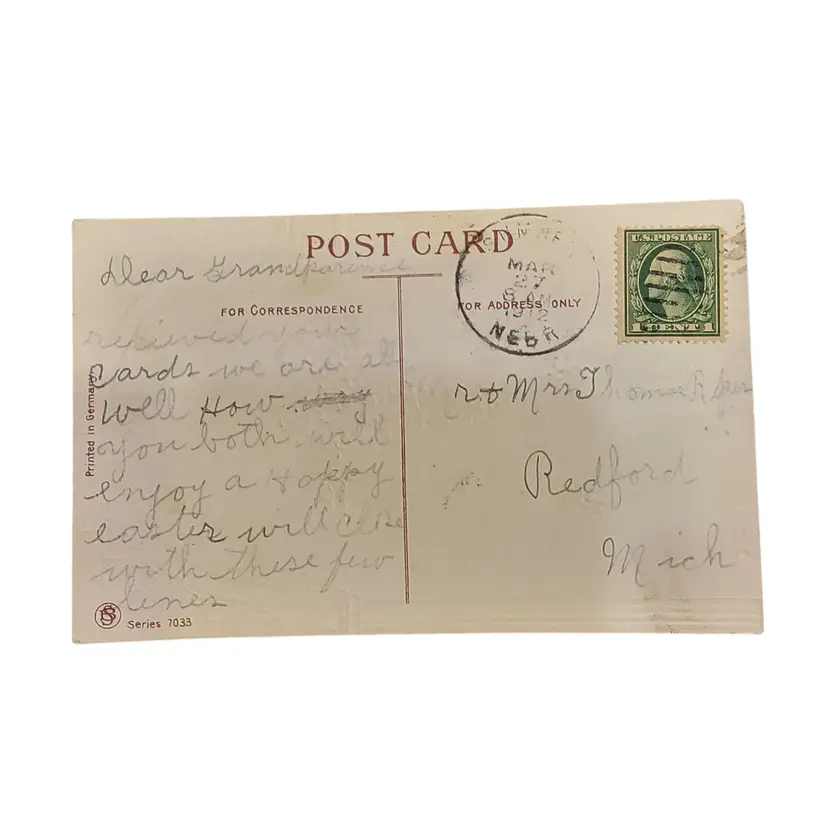 POST CARD
Dear Grandparence
FOR CORRESPONDENCE
recieved your
cards we are all
well How
you both will
enjoy a Happy
easter will close
with these few
lines
Printed in Germany
Series 7033
FOR ADDRESS ONLY
MAR
27
8 AM
1912
NEBR
U.S. POSTAGE
1 CENT 1
r & Mrs Thomas
Redford
Mich